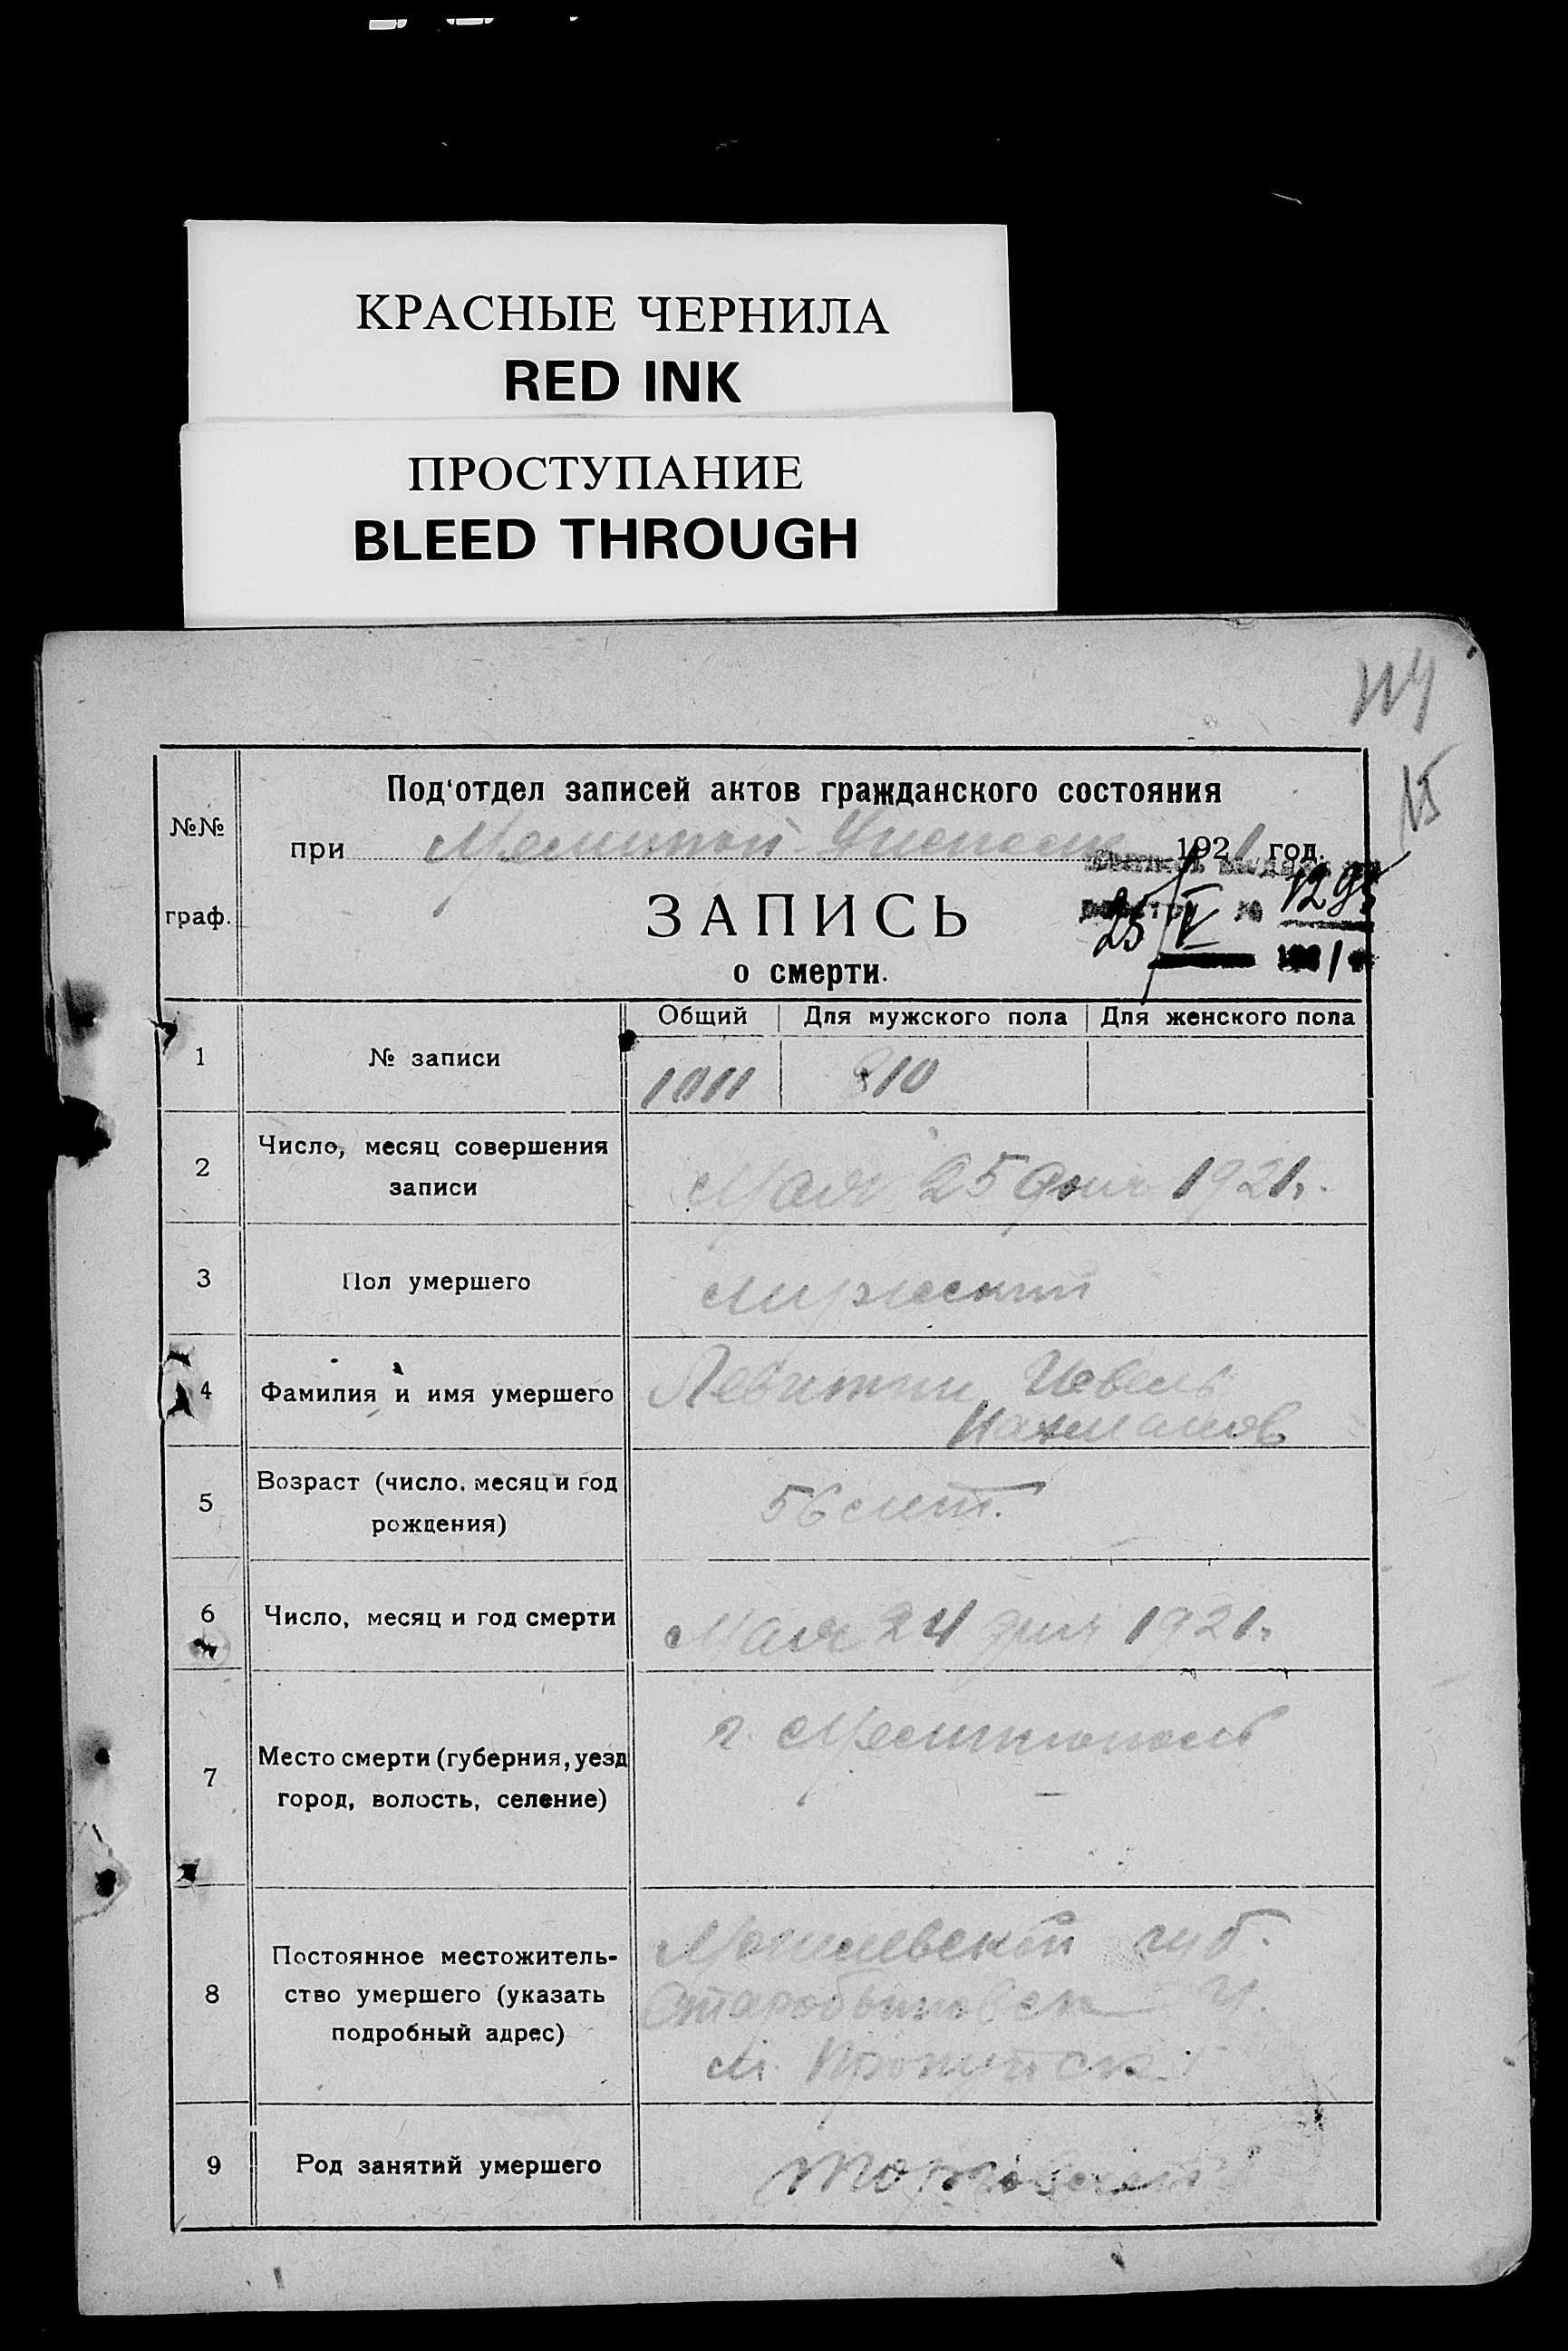 КРАСНЫЕ ЧЕРНИЛА
RED INK
ПРОСТУПАНИЕ
BLEED THROUGH
№№ граф.
Под'отдел записей актов гражданского состояния
при 1921 год.
25/V № 129
ЗАПИСЬ
о смерти.
Общий Для мужского пола Для женского пола
1 № записи 1011 810
2 Число, месяц совершения
записи
Мая 25 дня 1921 г.
3 Пол умершего мужеский
4 Фамилия и имя умершего Левитин
Нахманов
5 Возраст (число, месяц и год
рождения)
56 лет.
6 Число, месяц и год смерти Мая 24 дня 1921 г.
7 Место смерти (губерния, уезд
город, волость, селение)
г. Мелитополь
8 Постоянное местожитель-
ство умершего (указать
подробный адрес)
Могилевской губ.
Старобыховск у.
м. Пропойск
9 Род занятий умершего